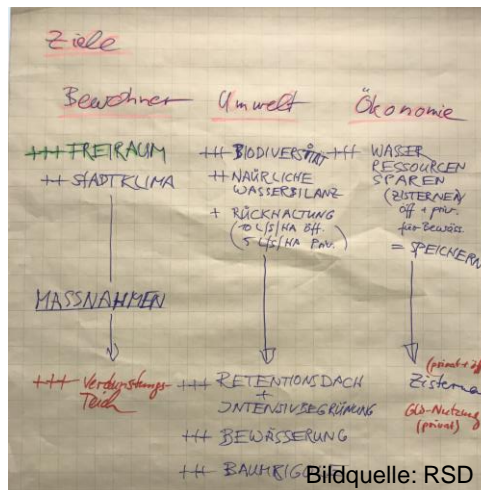 Ziele
Bewohner Umwelt Ökonomie
+++ FREIRAUM
++ STADTKLIMA
MASSNAHMEN
+++ Verdunstungs-
Teich
+++ BIODIVERSITÄT
++ NATÜRLICHE
WASSERBILANZ
+ RÜCKHALTUNG
(10 L/S/HA öff.
5 L/S/HA Priv.)
+++ RETENTIONSDACH
+
INTENSIVBEGRÜNUNG
+++ BEWÄSSERUNG
+++
+++ WASSER
RESSOURCEN
SPAREN
(ZISTERNEN
öff + priv.
für Bewäss.
= SPEICHERN
(privat + öff
Zisterne
GW-Nutzung
(privat)
Bildquelle: RSD